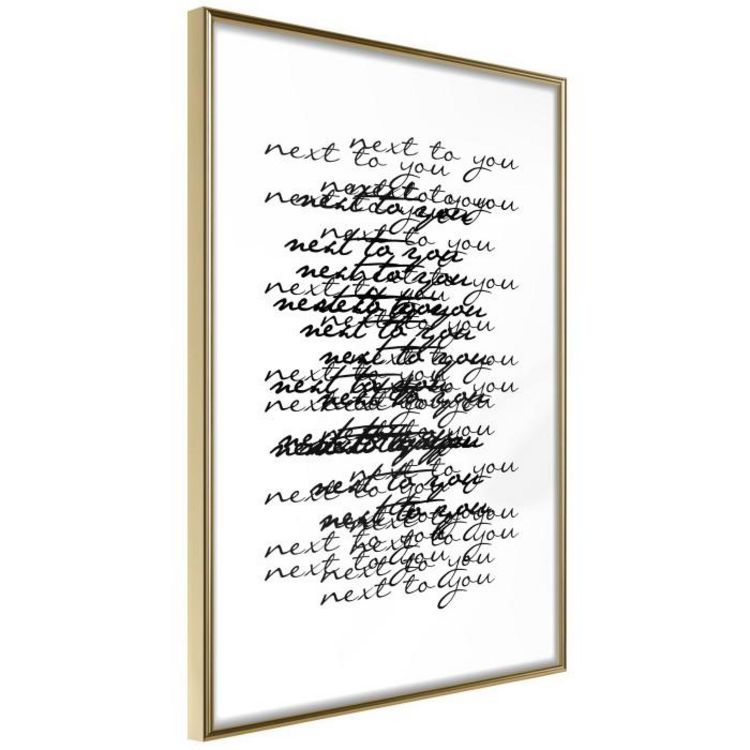 next to you
next to you
next to you
next to you
next to you
next to you
next to you
next to you
next to you
next to you
next to you
next to you
next to you
next to you
next to you
next to you
next to you
next to you
next to you
next to you
next to you
next to you
next to you
next to you
next to you
next to you